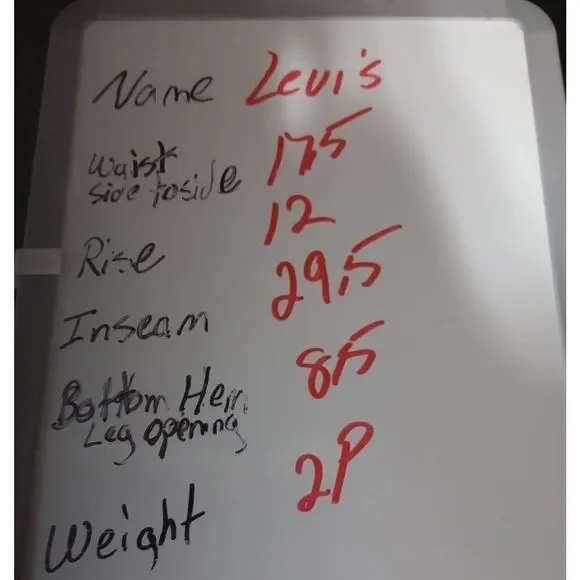 Name Levi's
Waist
side to side 17.5
Rise 12
Inseam 29.5
Bottom Hem
Leg opening 8.5
Weight 2P